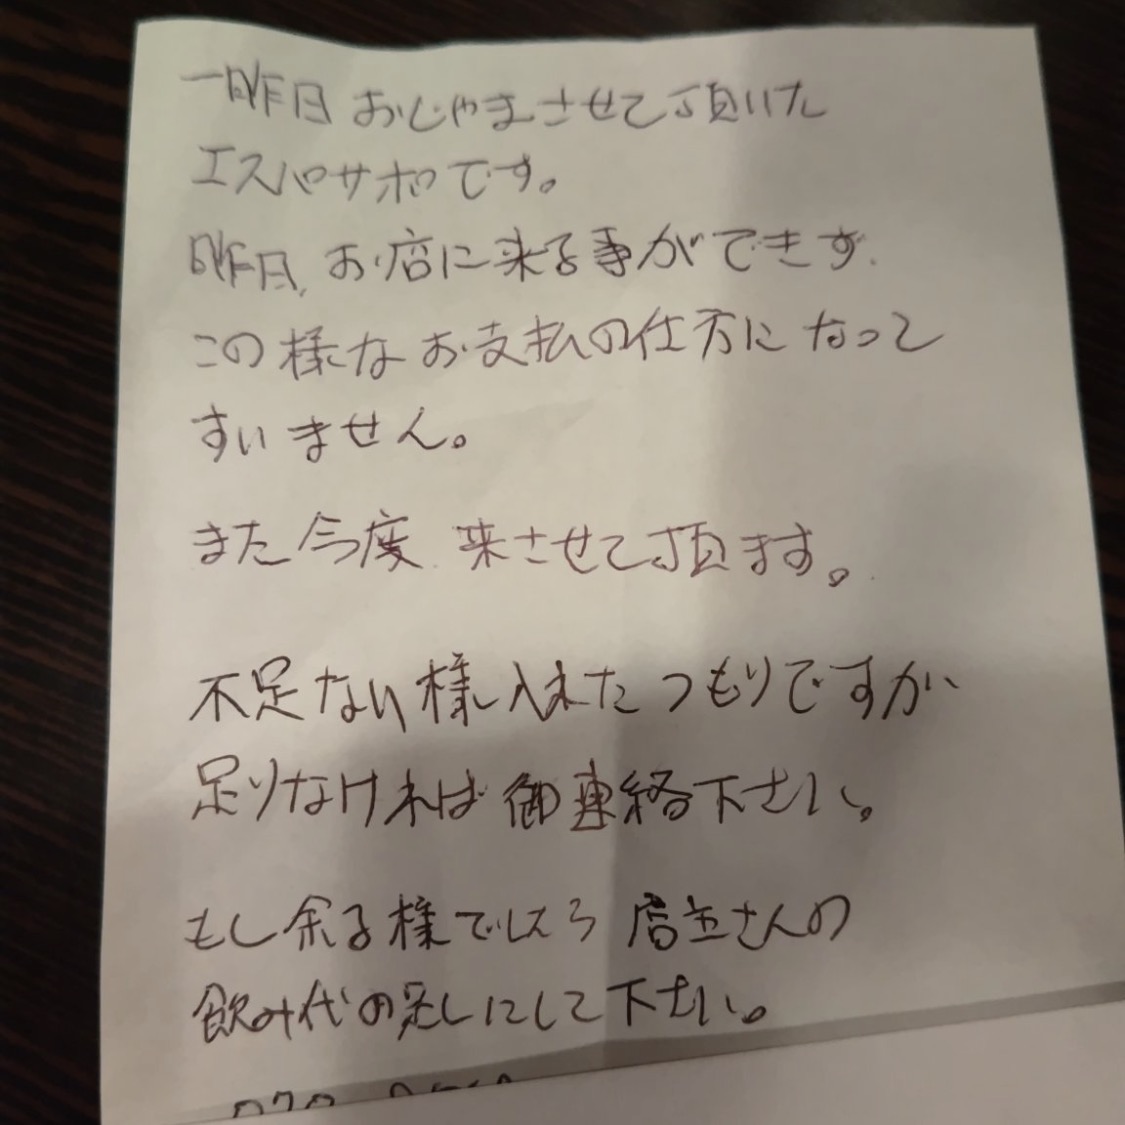 一昨日 おじゃまさせて頂いた
エスパサポです。
昨日、お店に来る事ができず、
この様なお支払の仕方になって
すいません。
また今度 来させて頂ます。
不足ない様入れたつもりですが
足りなければ御連絡下さい。
もし余る様でしたら 店主さんの
飲み代の足しにして下さい。